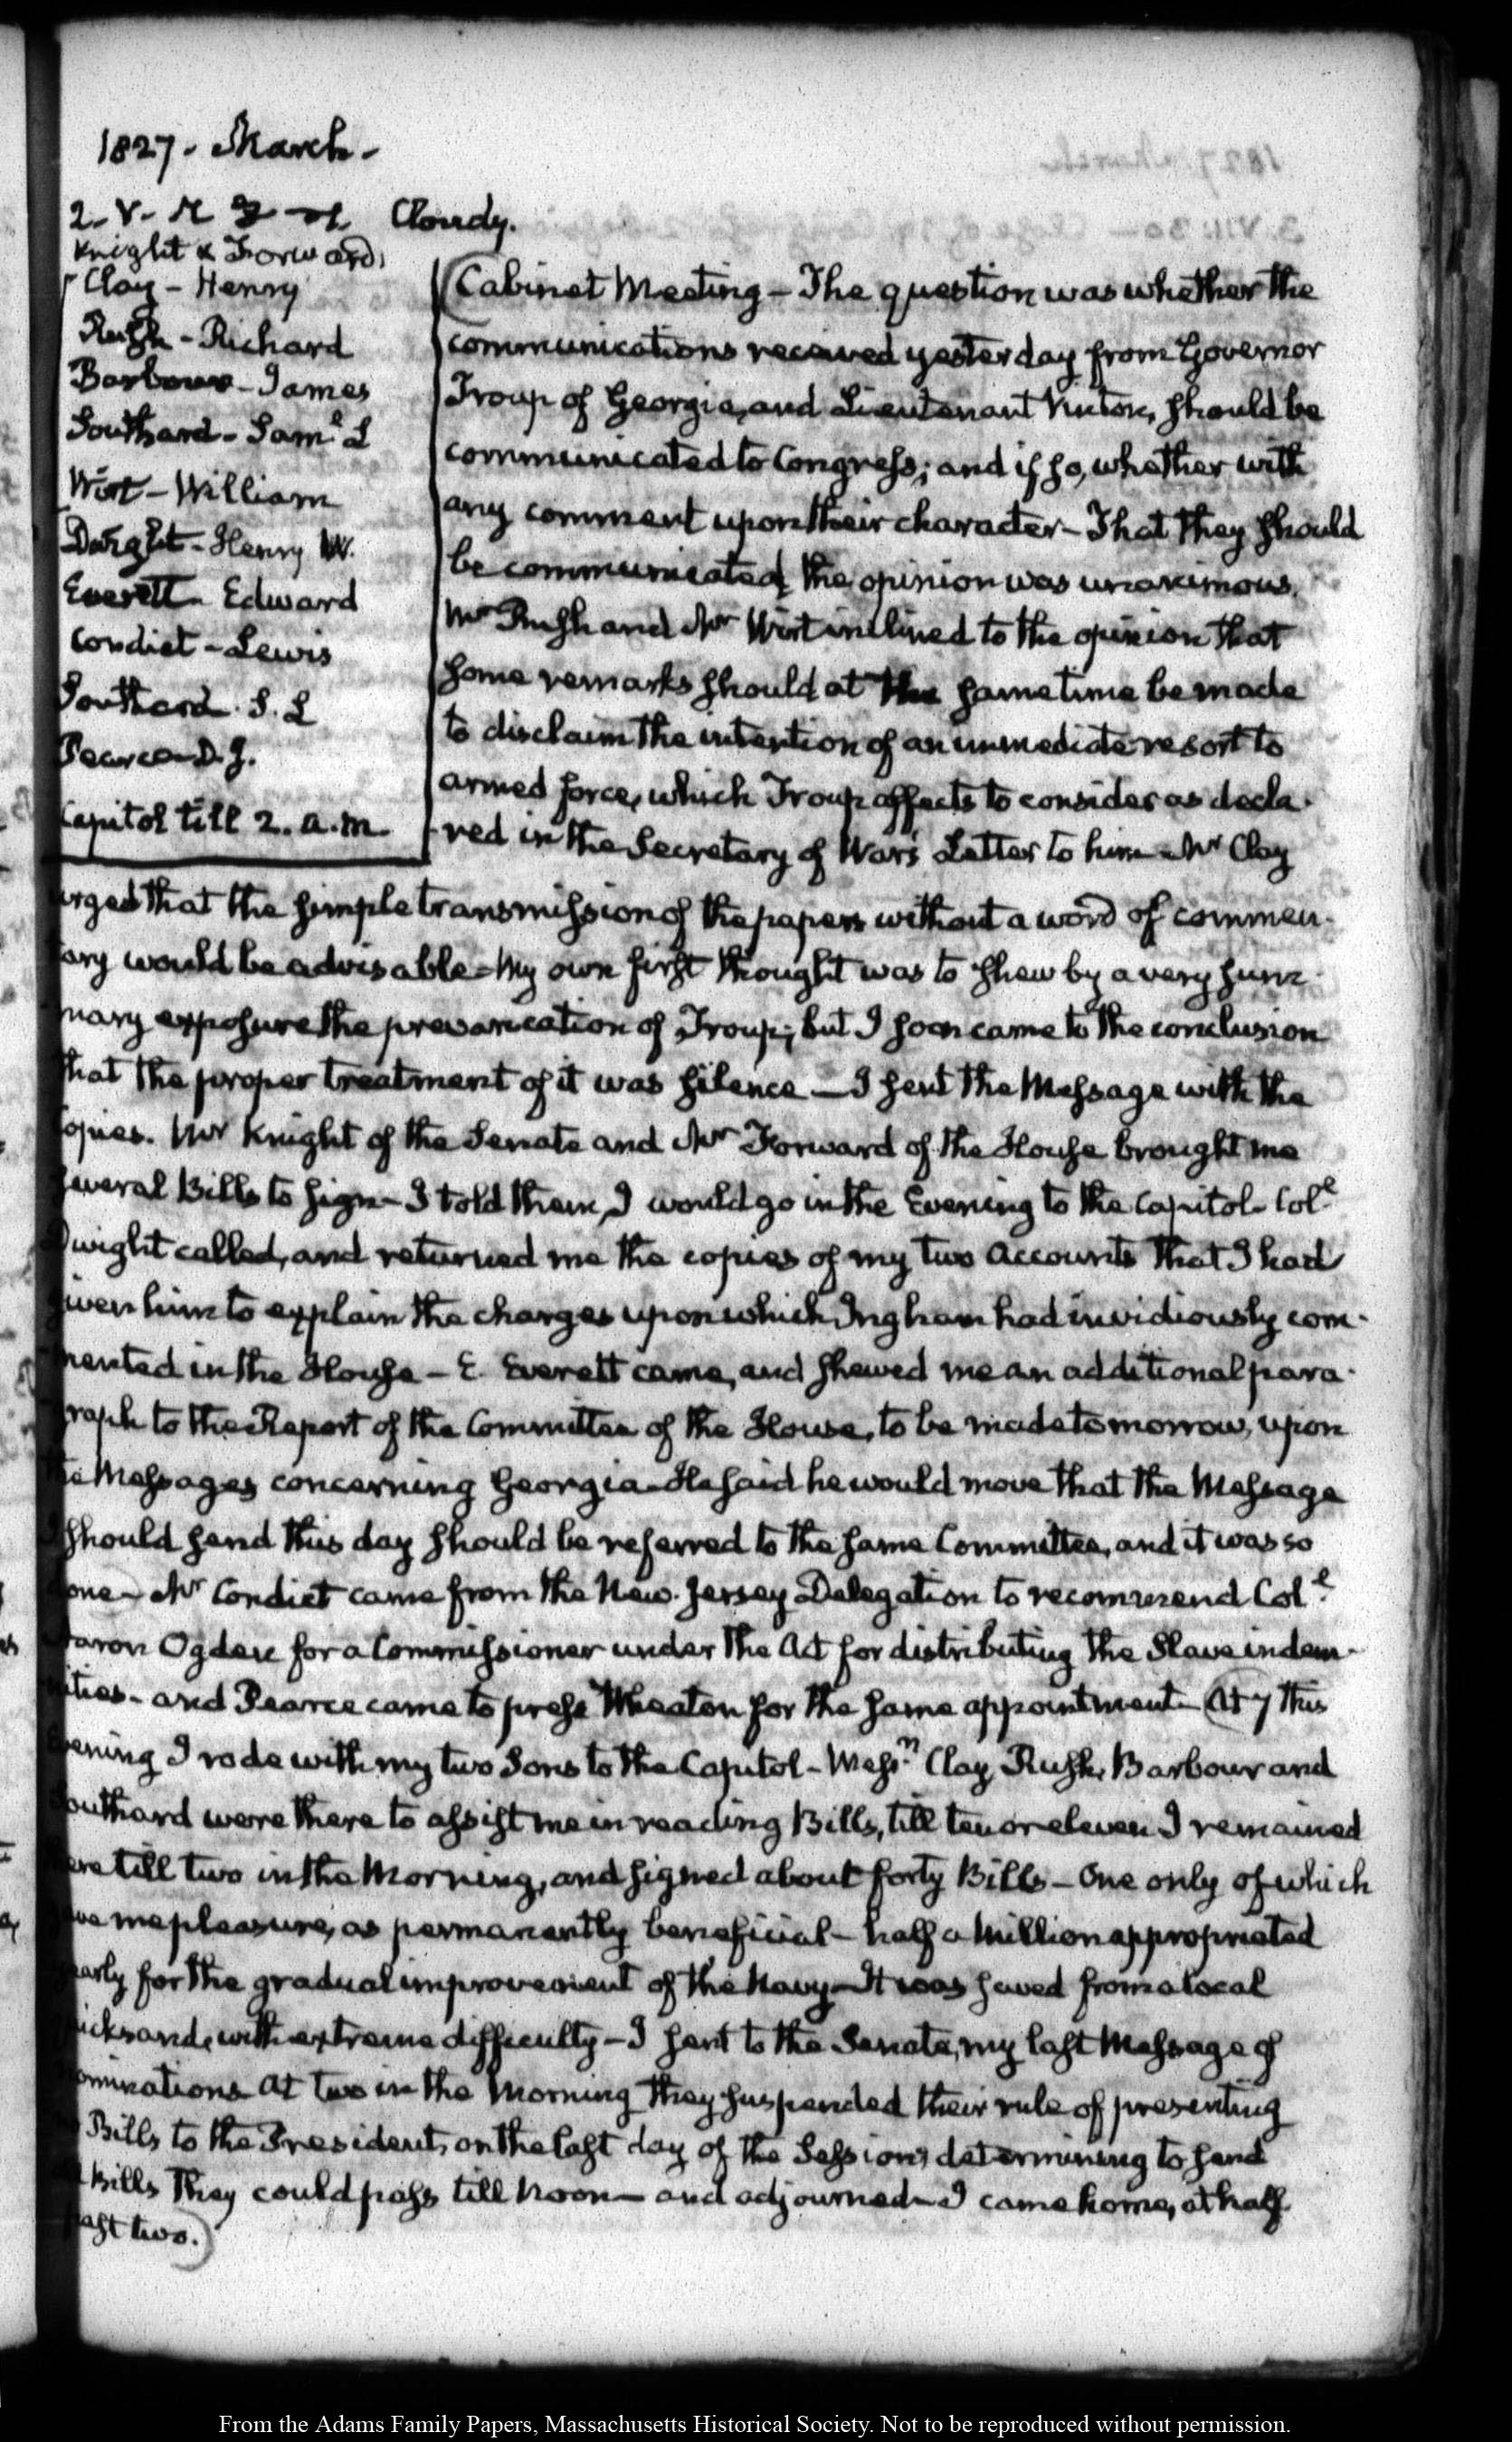 1827. March.
2. V. Cloudy.
Knight & Forward
Clay - Henry
Rush - Richard
Barbour - James
Southard - Saml. L
Wirt - William
Dwight - Henry W.
Everett - Edward
Condict - Lewis
Southard. S. L
Pearce D. J.
Capitol till 2. a.m.
(Cabinet Meeting - The question was whether the
communications received yesterday from Governor
Troup of Georgia, and Lieutenant Vinton, should be
communicated to Congress; and if so, whether with
any comment upon their character - That they should
be communicated, the opinion was unanimous.
Mr Rush and Mr Wirt inclined to the opinion that
some remarks should at the same time be made
to disclaim the intention of an immediate resort to
armed force, which Troup affects to consider as decla-
red in the Secretary of War's Letter to him - Mr Clay
urged that the simple transmission of the papers without a word of commen-
tary would be advisable - My own first thought was to shew by a very sum-
mary exposure the prevarication of Troup; but I soon came to the conclusion
that the proper treatment of it was silence - I sent the Message with the
copies. Mr Knight of the Senate and Mr Forward of the House brought me
several Bills to sign - I told them, I would go in the Evening to the Capitol - Coll
Dwight called, and returned me the copies of my two Accounts that I had
given him to explain the charges upon which Ingham had invidiously com-
mented in the House - E. Everett came, and shewed me an additional para-
graph to the Report of the Committee of the House, to be made tomorrow, upon
the Messages concerning Georgia - He said he would move that the Message
I should send this day should be referred to the same Committee, and it was so
done - Mr Condict came from the New-Jersey Delegation to recommend Coll
Aaron Ogden for a Commissioner under the Act for distributing the Slave indem-
nities - and Pearce came to press Wheaton for the same appointment - (At 7 this
Evening I rode with my two Sons to the Capitol - Messrs Clay, Rush, Barbour and
Southard were there to assist me in reading Bills, till ten or eleven I remained
there till two in the Morning, and signed about forty Bills - One only of which
gave me pleasure, as permanently beneficial - half a Million appropriated
yearly for the gradual improvement of the Navy - It was saved from a local
quicksand, with extreme difficulty - I sent to the Senate, my last Message of
nominations At two in the Morning they suspended their rule of presenting
no Bills to the President, on the last day of the Session; determining to send
all Bills they could pass till Noon - and adjourned - I came home, at half
past two.)
From the Adams Family Papers, Massachusetts Historical Society. Not to be reproduced without permission.